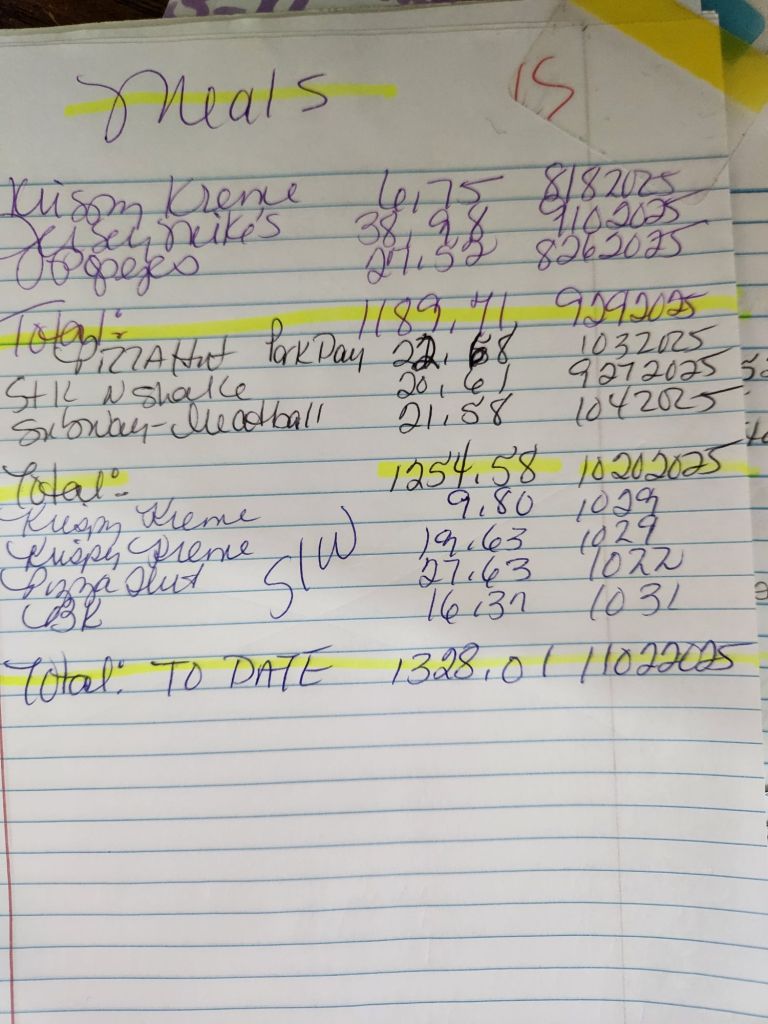 Meals 15
Krispy Kreme 6.75 8182025
Jersey Mike's 38.98 9102025
27.52 8262025
Total: 1189.71 9292025
Pizza Hut Park Day 22.68 1032025
Stk N Shake 20.61 9272025
Subway-Meatball 21.58 1042025
Total: 1254.58 10202025
Krispy Kreme 9.80 1029
Krispy Kreme 19.63 1029
Pizza Hut S/W 27.63 1022
BK 16.37 1031
Total: TO DATE 1328.01 11022025